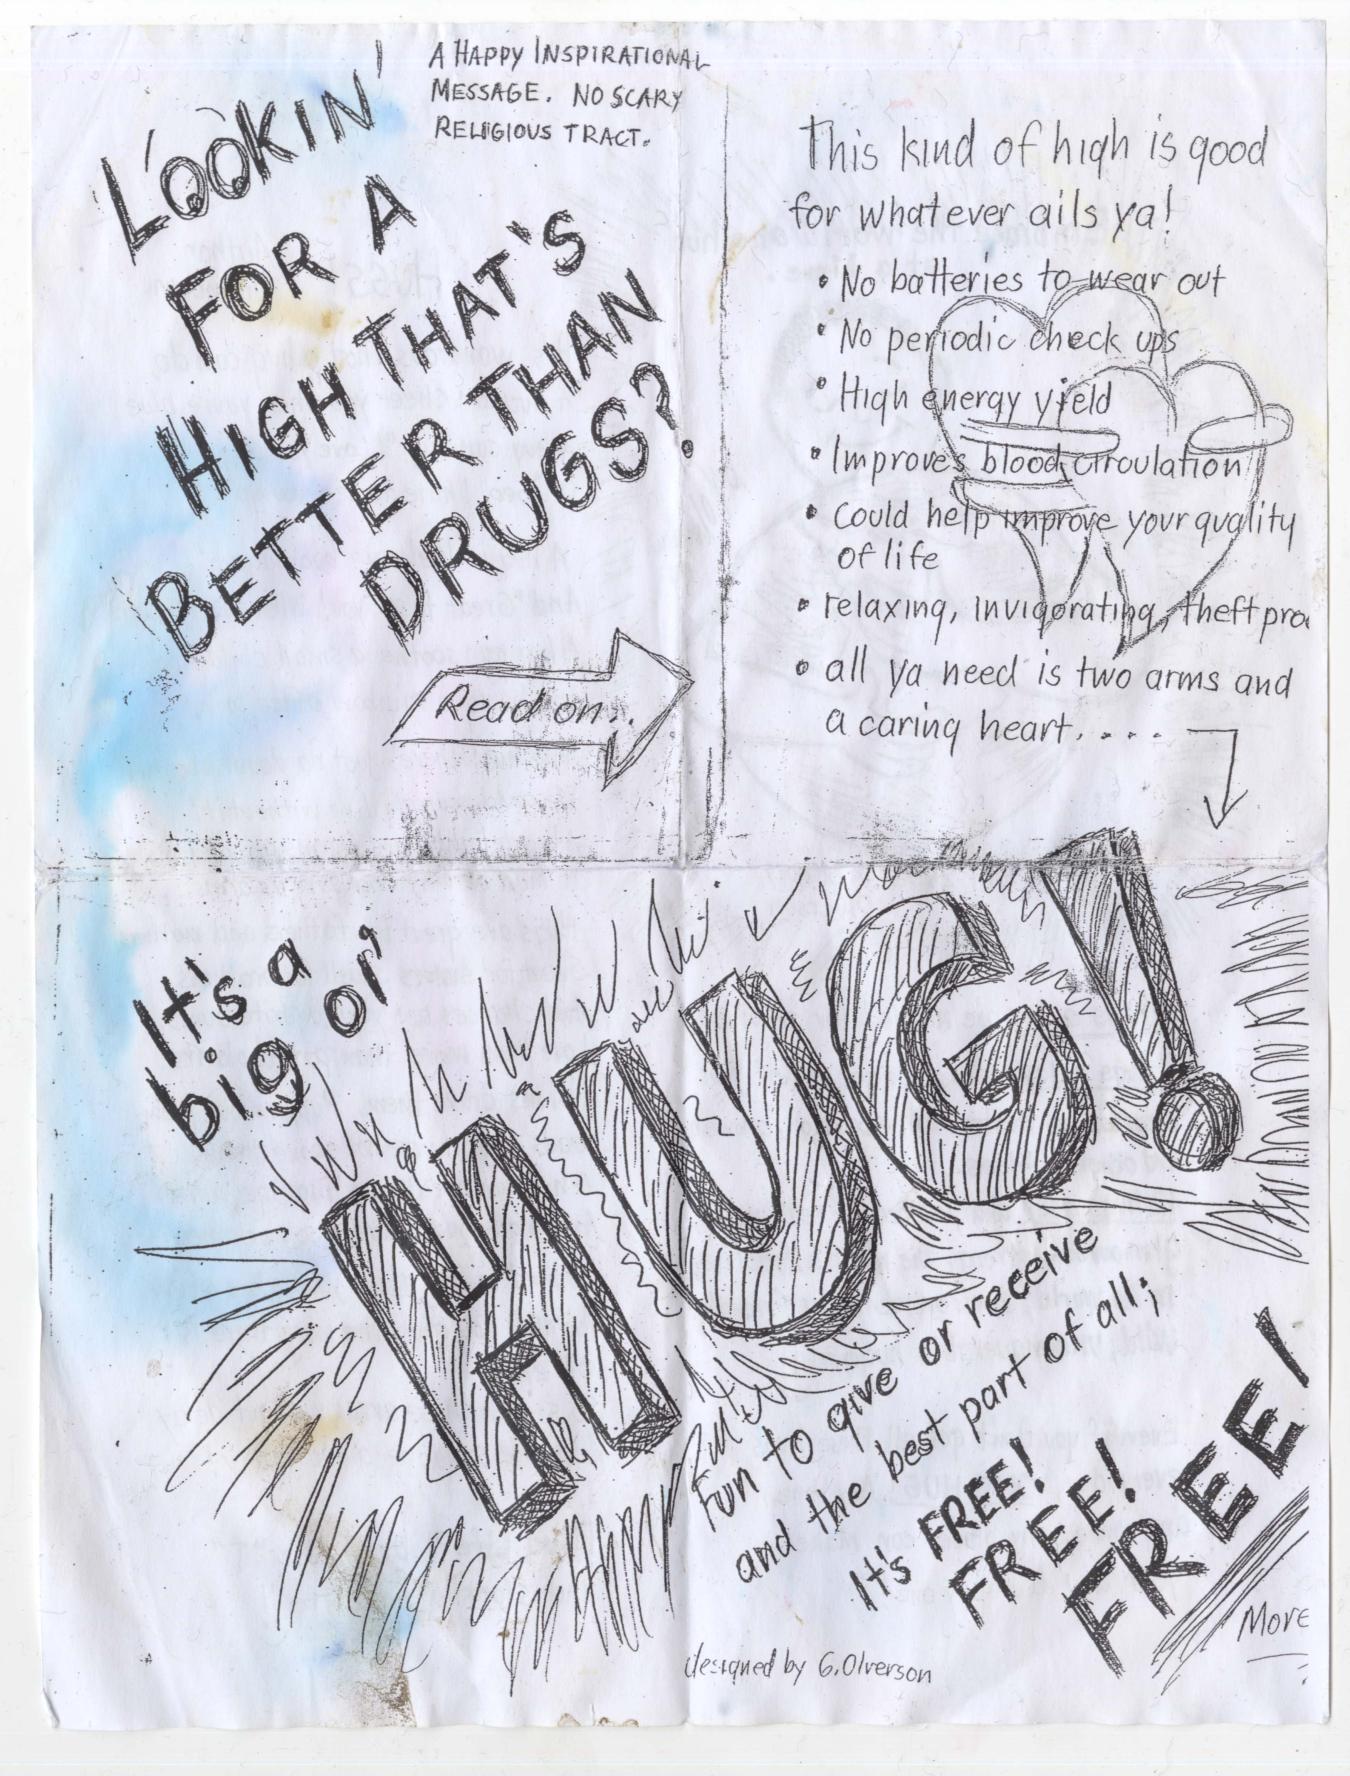 A HAPPY INSPIRATIONAL
MESSAGE. NO SCARY
RELIGIOUS TRACT.
LOOKIN'
FOR A
HIGH THAT'S
BETTER THAN
DRUGS?
Read on...
This kind of high is good
for whatever ails ya!
• No batteries to wear out
• No periodic check ups
• High energy yield
• Improves blood circulation
• Could help improve your quality
of life
• relaxing, invigorating, theft proo
• all ya need is two arms and
a caring heart.....
It's a
big ol'
HUG!
Fun to give or receive
and the best part of all;
It's FREE!
FREE!
FREE!
More
designed by G. Olverson